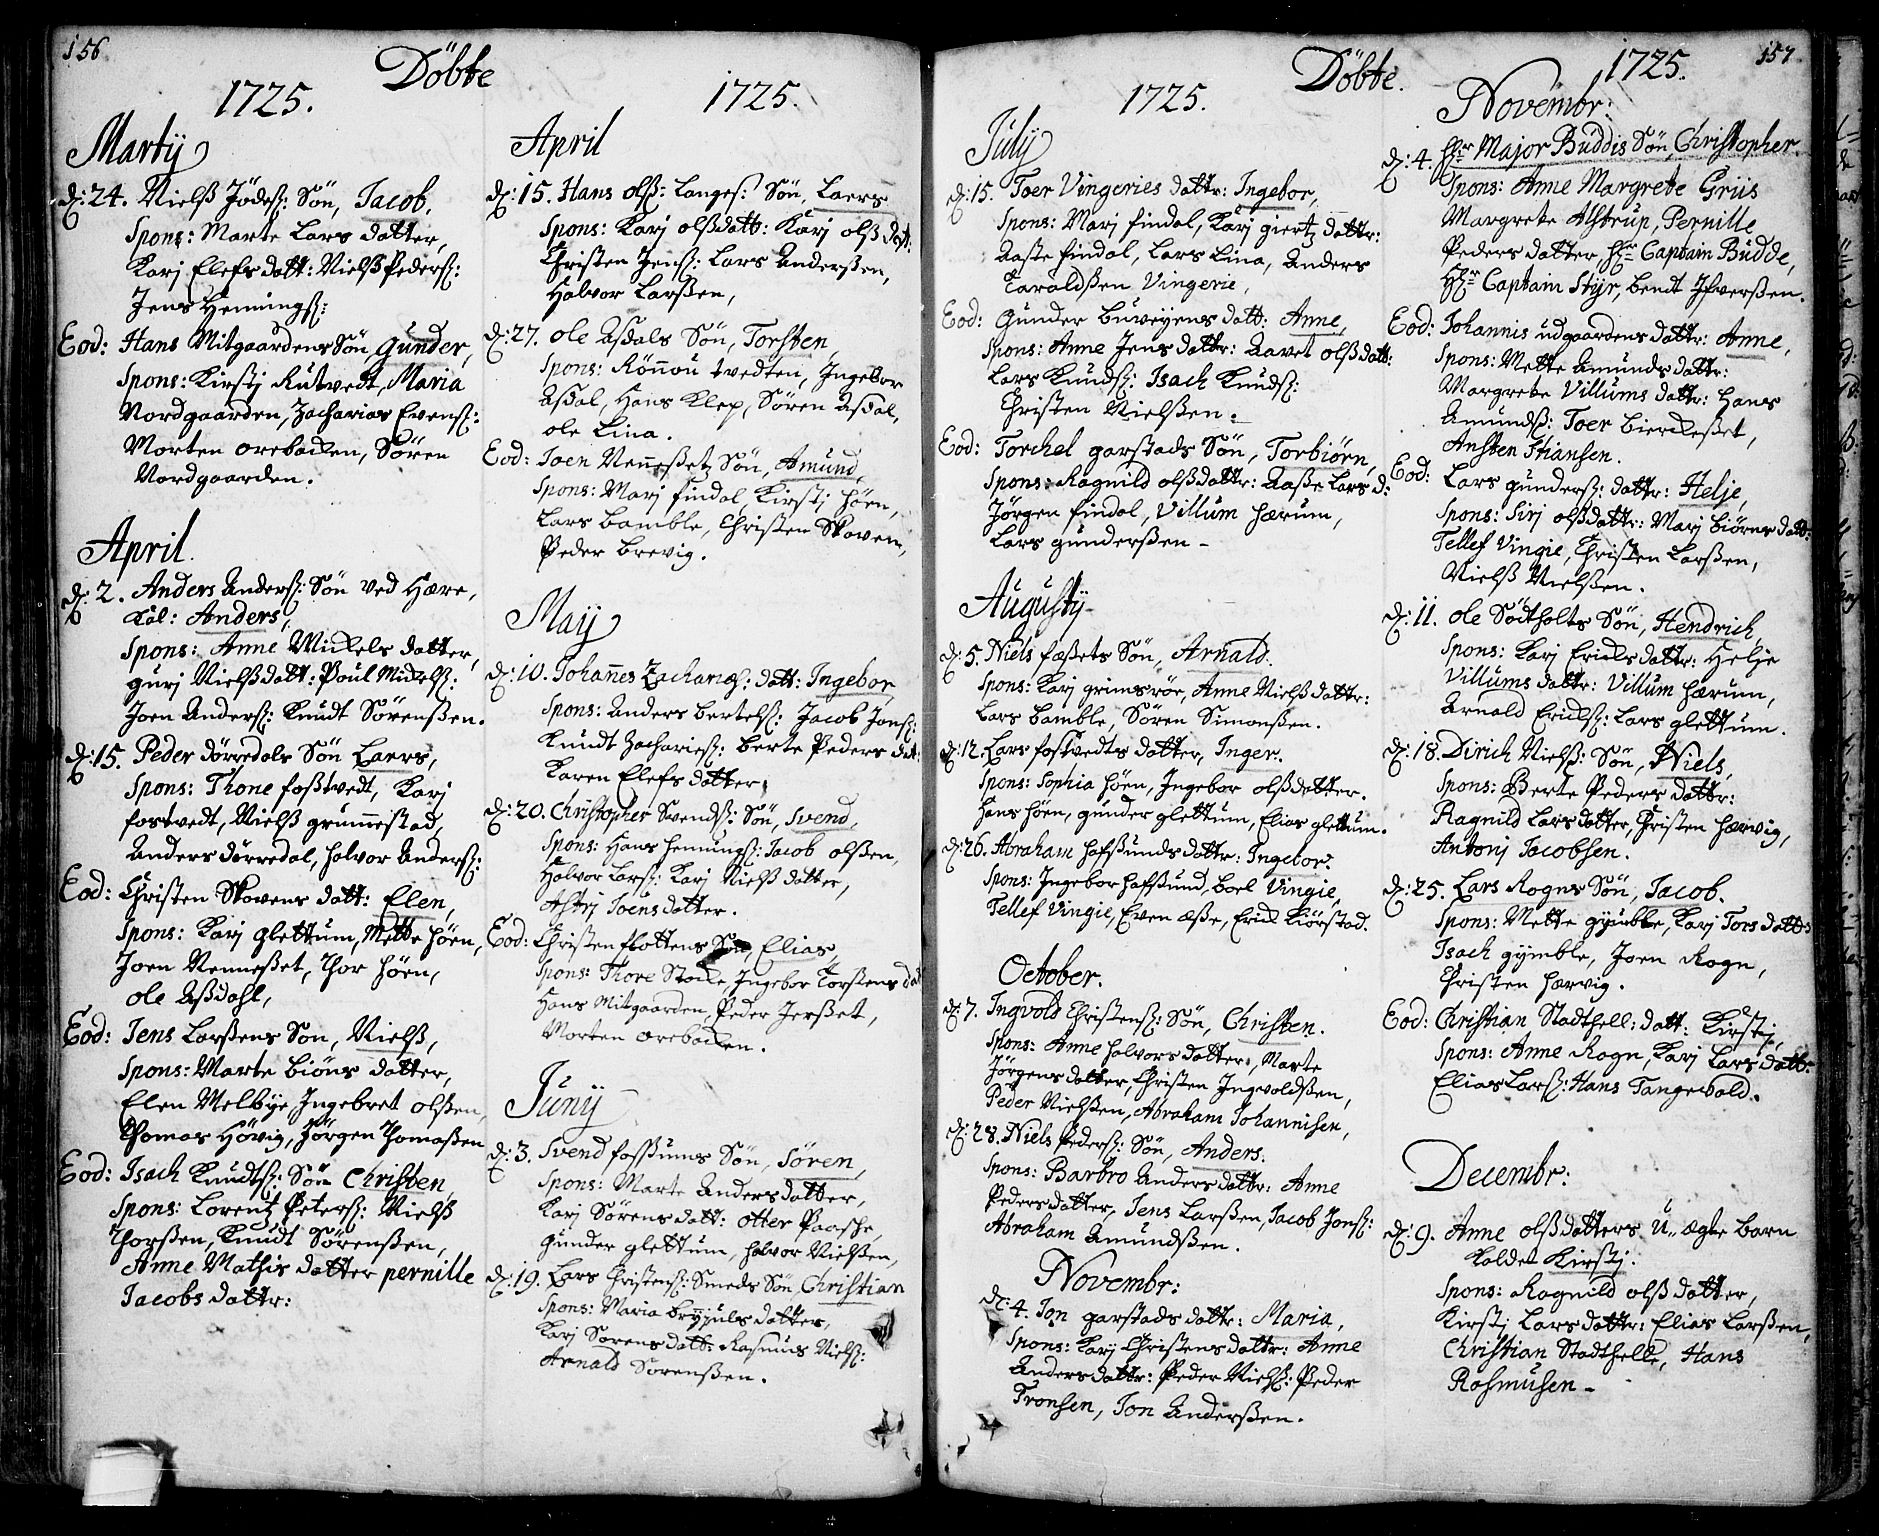 156
Döbte
1725.
Martij
d: 24. Nielß Jödeß: Sön, Jacob,
Spons: Marte Lars datter,
Karj Elefs datt: Nielß Pederß:
Jens Hemingß:
Eod: Hans Mitgaardens Sön Gunder,
Spons: Kirstj Rutvedt, Maria
Nordgaarden, Zacharias Evenß:
Morten orebacken, Sören
Nordgaarden.
April
d: 2. Anders Anderß: Sön ved Hære,
kal: Anders,
Spons: Anne Mickels datter,
gurj Nielßdatt: Poul Mickelß:
Joen Anderß: Knudt Sörenßen.
d: 15. Peder dörredals Sön Laers,
Spons: Thone foßtvedt, Karj
fostvedt, Nielß grummestad,
Anders dörredal, halvor Anderß:
Eod: Christen Skovens datt: Elen,
Spons: Karj glettum, Mette höen,
Joen Vennesßet, Thor höen,
ole Aßdahl,
Eod: Jens Larßens Sön, Nielß,
Spons: Marte biöns datter,
Elen Melbye, Ingebret olßen,
Thomas Hövig, Jörgen Thomaßen
Eod: Isach Knudtß: Sön Christen,
Spons: Lorentz Peterß: Nielß
Thorßen, Knudt Sörenßen,
Anne Mathis datter pernille
Jacobs dattr:
1725.
April
d: 15. Hans olß: Langes: Sön, Laers
Spons: Karj olßdatt: Karj olß datt:
Christen Jenß: Lars Anderßen,
Halvor Larßen,
d: 27. ole Aßdals Sön, Torsten,
Spons: Rönnou tvedten, Ingebor
Aßdal, Hans Klep, Sören Aßdal,
ole Lina.
Eod: Joen Venneßetz Sön, Amund,
Spons: Marj findal, Kirstj höen,
Lars bamble, Christen Skoven,
Peder brevig.
Maij
d: 10. Johannes Zachariæß: datt: Ingebor,
Spons: Anders bertelß: Jacob Jonß:
Knudt Zachariesß: berte Peders datt:
Karen Elefs datter,
d: 20. Christopher Swendß: Sön, Svend,
Spons: Hans hemingß: Jacob olßen,
Halvor Larß: Karj Nielß datter,
Astrj Joens datter.
Eod: Christen flottens Sön, Elias,
Spons: Thore Stocke, Ingebor Torstens dat
Hans Mitgaarden, Peder Jerßet,
Morten orebacken.
Junij
d: 3. Svend foßßums Sön, Sören,
Spons: Marte Anders datter,
Karj Sörens datt: otter Paasche,
gunder glettum, halvor Nielßen,
d: 19. Lars Christenß: Smeds Sön, Christian
Spons: Maria brÿjuls datter,
Karj Sörens datt: Rasmus Nielß:
Arnald Sörenßen.
157
Döbte.
1725.
Julij
d: 15. Toer Vingeries dattr: Ingebor,
Spons: Marj findal, Karj giertz dattr:
Aaste findal, Lars Lina, Anders
Taraldßen Vingerie,
Eod: Gunder buveyens datt: Anne,
Spons: Anne Jens dattr: Aavet olßdatt:
Lars Knudß: Isach Knudß:
Christen Nielßen.
Eod: Torchel garstads Sön, Torbiörn,
Spons: Ragnild olßdattr: Aaße Lars d:
Jörgen findal, Villum hærum,
Lars gunderßen -
Augustij
d: 5. Niels fæßets Sön, Arnald.
Spons: Karj grimsrör, Anne Nielßdattr:
Lars bamble, Sören Simonßen.
d: 12. Lars fostvedts datter, Inger.
Spons: Sophia höen, Ingebor olßdatter.
Hans höen, gunder glettum, Elias glettum.
d: 26. Abraham hafsunds dattr: Ingebor.
Spons: Ingebor hafsund, boel Vingie,
Tellef Vingie, Even æße, Erick Kiörstad.
October.
d: 7. Ingvold Christenß: Sön, Christen.
Spons: Anne halvors datter, Marte
Jörgens datter, Christen Ingvoldßen,
Peder Nielßen, Abraham Johannisen,
d: 28. Niels Pederß: Sön, Anders.
Spons: Barbro Anders dattr: Anne
Peders datter, Jens Larßen, Jacob Jonß:
Abraham Amundßen.
Novembr:
d: 4. Jon garstads dattr: Maria,
Spons: Karj Christens dattr: Anne
Anders dattr: Peder Nielß: Peder
Tronsen, Jon Anderßen.
1725.
Novembr:
d: 4. Hr Major Buddis Sön, Christopher.
Spons: Anne Margrete Griis
Margrete Alstrup, Pernille
Peders datter, Hr Captain Budde,
Hr Captain Styr, bendt Ifverßen.
Eod: Johannis udgaardens dattr: Anne,
Spons: Mette Amunds dattr:
Margrete Villums dattr: Hans
Amundß: Toer bierckeßet,
Ansten Stiansen.
Eod: Lars gunderß: dattr: Helje,
Spons: Sirj olßdattr: Marj biörns datt:
Tellef Vingie, Christen Larßen,
Nielß Nielßen.
d: 11. ole Södtholts Sön, Hendrich,
Spons: Karj Ericks dattr: Helje
Villums dattr: Villum hærum,
Arnald Erickß: Lars glettum.
d: 18. Dirich Nielß: Sön, Niels,
Spons: Berte Peders dattr:
Ragnild Lars datter, Christen hærvig,
Antonj Jacobsen.
d: 25. Lars Rogns Sön, Jacob.
Spons: Mette gÿmble, Karj Tors datt:
Isach gÿmble, Joen Rogn,
Christen hærvig.
Eod: Christian Stadthell: datt: Kirstj,
Spons: Anne Rogn, Karj Lars datt:
Elias Larß: Hans Tangevald.
Decembr:
d: 9. Anne olßdatters U,, ægte barn
kaldet Kirstj.
Spons: Ragnild olß datter,
Kirstj Lars dattr: Elias Larßen,
Christian Stadthelle, Hans
Rasmusen -